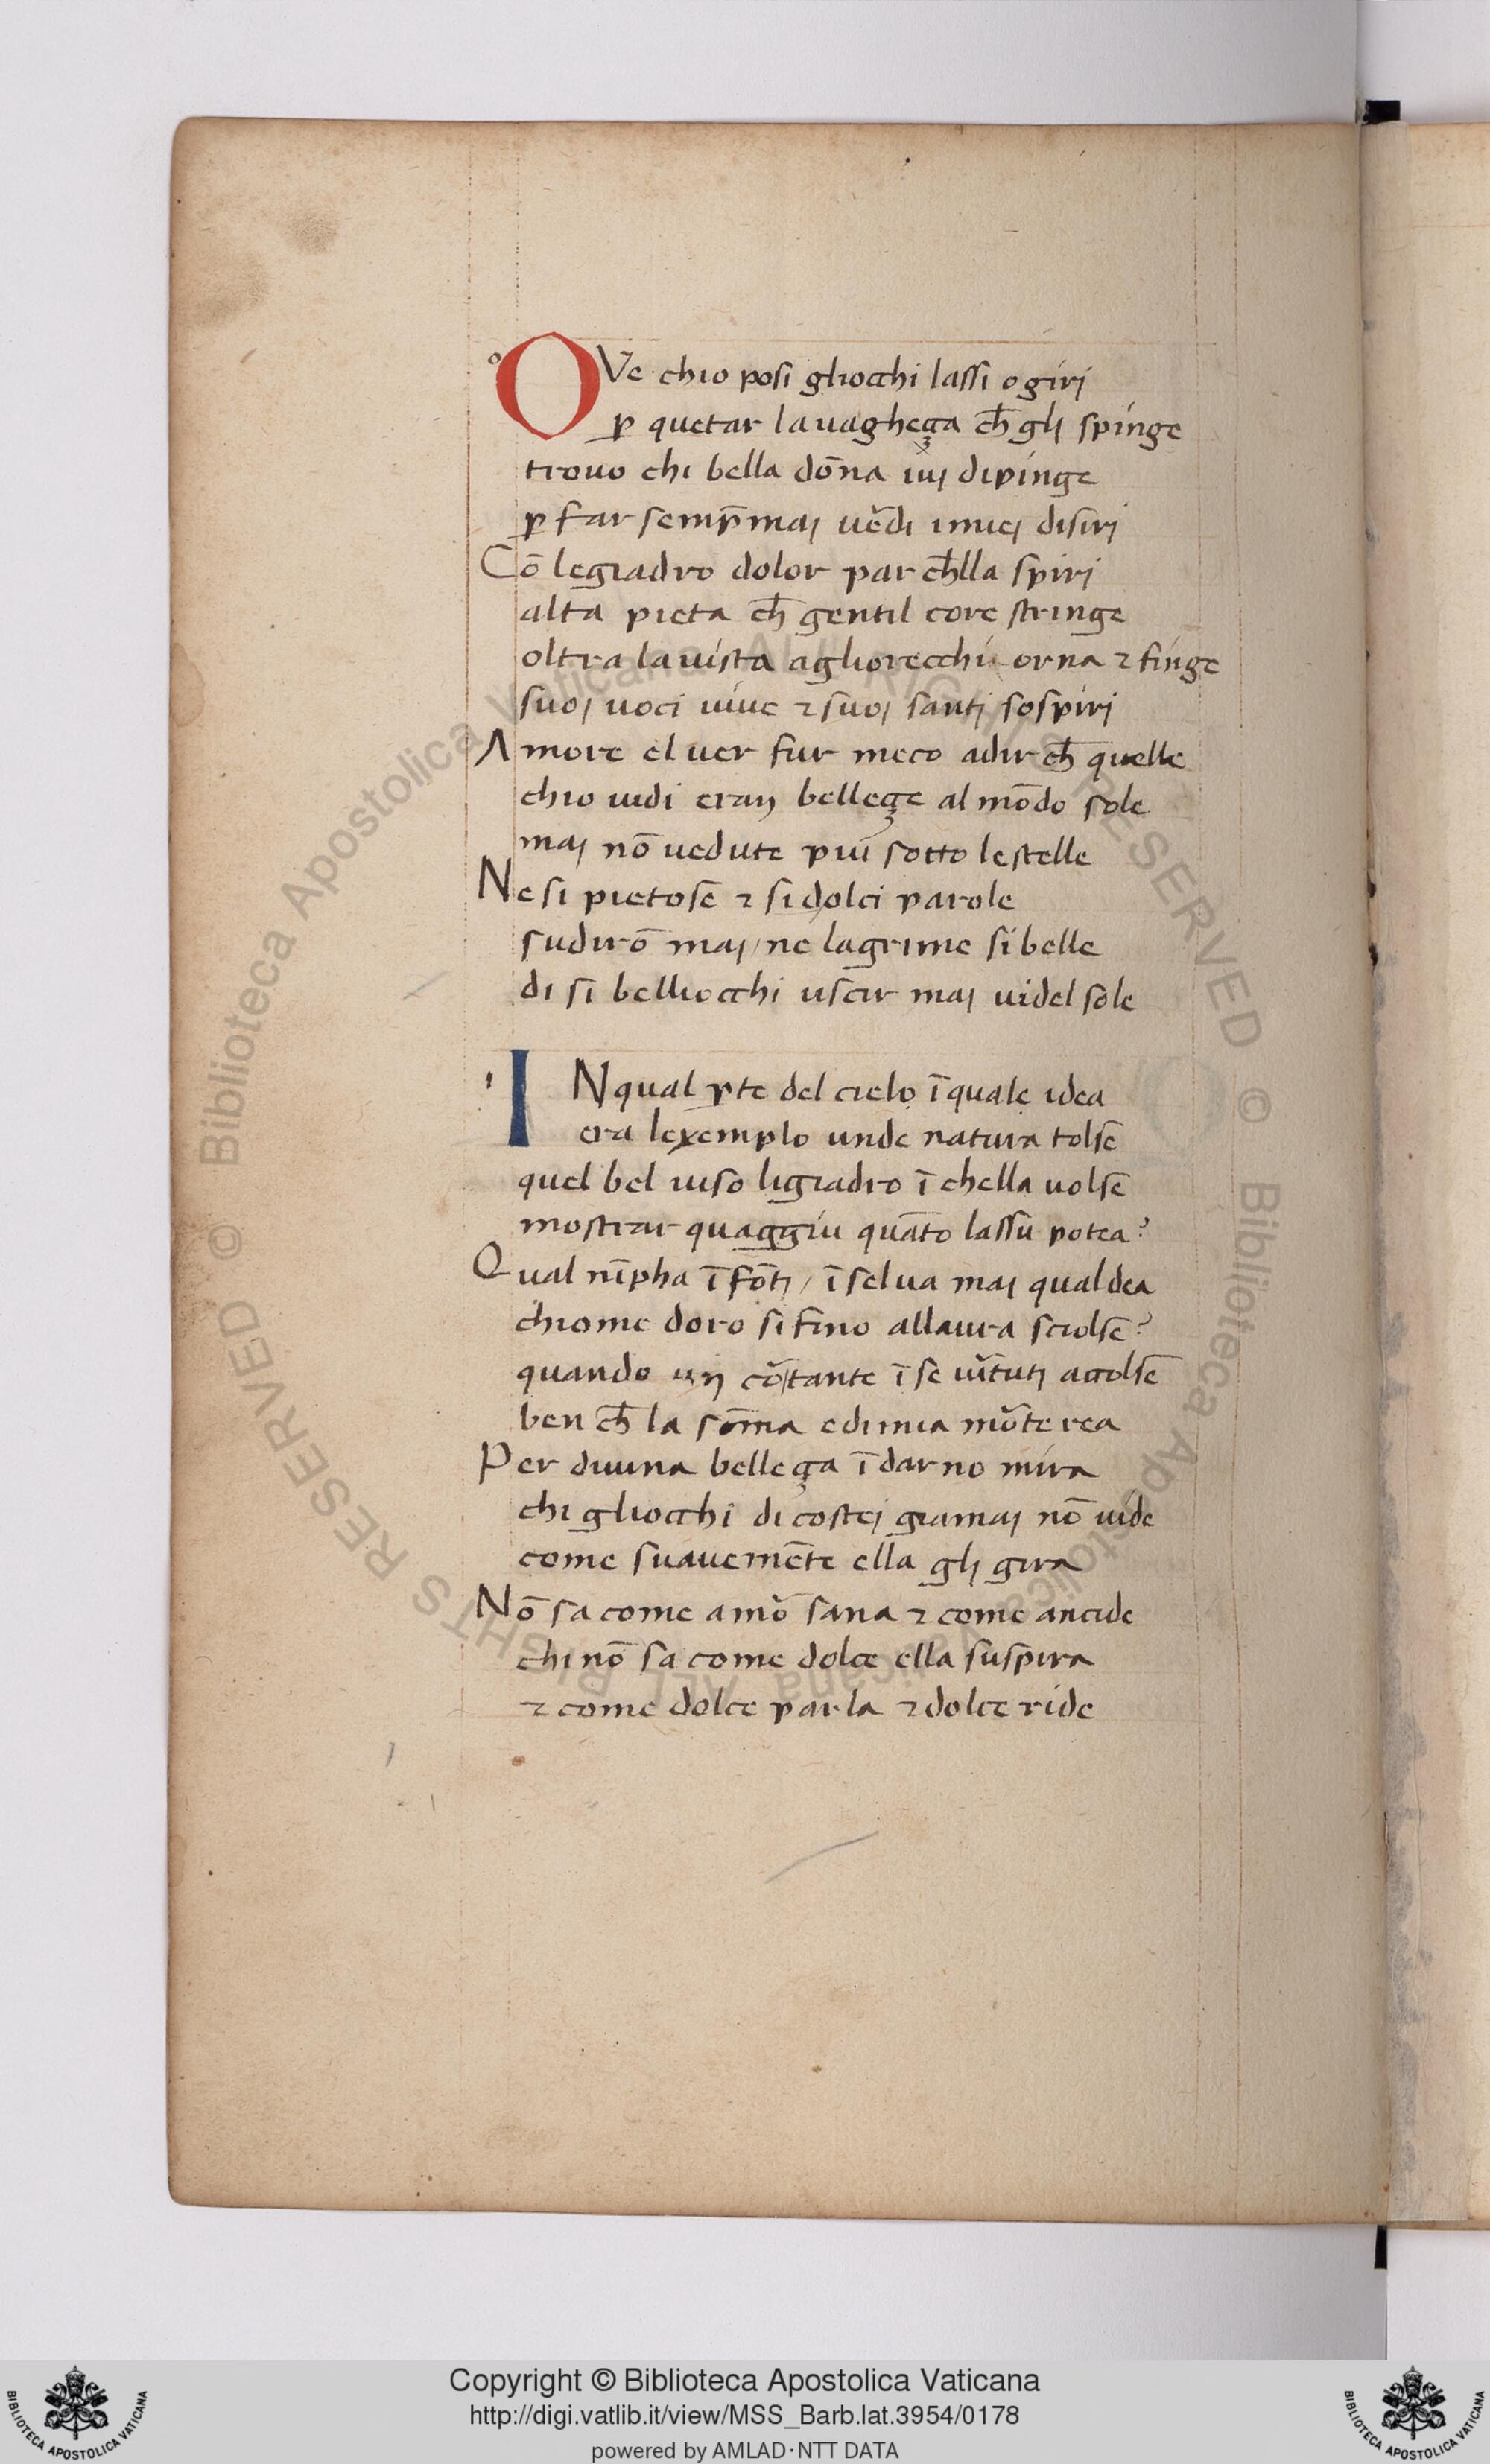 OVe chio posi gliocchi lassi o giri
ꝑ quetar la uagheza ch̄ gli spinge
trouo chi bella dōna iui dipinge
ꝑ far semp̄ mai uẽdi i miei disiri
Cō legiadro dolor par ch̄lla spiri
alta pieta ch̄ gentil core stringe
oltra la uista agliorecchi orna ⁊ finge
suoi uoci uiue ⁊ suoi santi sospiri
Amore el uer fur meco a dir ch̄ quelle
chio uidi eran belleze al mōdo sole
mai nō uedute piu sotto le stelle
Ne si pietose ⁊ si dolci parole
sudirō mai / ne lagrime si belle
di si belliocchi uscir mai uidel sole
IN qual ꝑte del cielo ī quale idea
era lexemplo unde natura tolse
quel bel uiso ligiadro ī chella uolse
mostrar quaggiu quāto lassu potea?
Qual nīpha ī fōti / ī selua mai qual dea
chiome doro si fino allaura sciolse?
quando un cor tante ī se uĩtuti accolse
ben ch̄ la sōma e di mia mõte rea
Per diuina belleza īdarno mira
chi gliocchi di costei giamai nō uide
come suauemēte ella gli gira
Nō sa come amõ sana ⁊ come ancide
chi nō sa come dolce ella suspira
⁊ come dolce parla ⁊ dolce ride
© Biblioteca Apostolica Vaticana ALL RIGHTS RESERVED © Biblioteca Apostolica Vaticana ALL RIGHTS RESERVED
Copyright © Biblioteca Apostolica Vaticana
http://digi.vatlib.it/view/MSS_Barb.lat.3954/0178
powered by AMLAD·NTT DATA
BIBLIOTECA APOSTOLICA VATICANA
BIBLIOTECA APOSTOLICA VATICANA